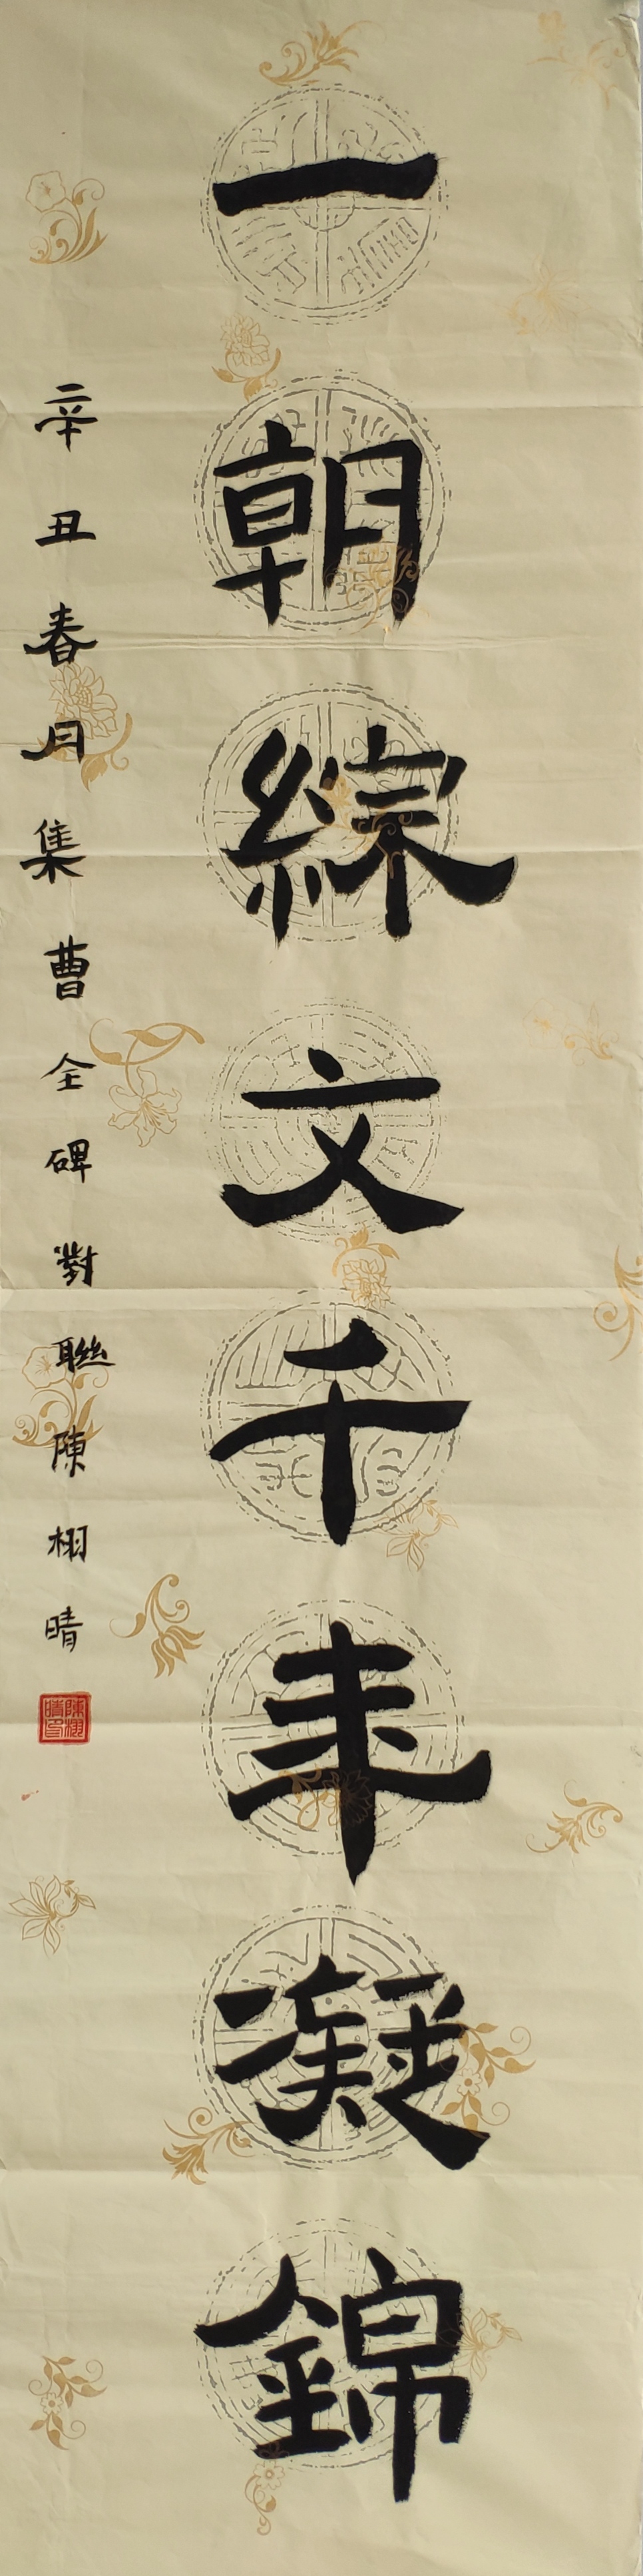 一朝綜文千年凝錦
辛丑春月集曹全碑對聯陳栩晴
陳栩晴印